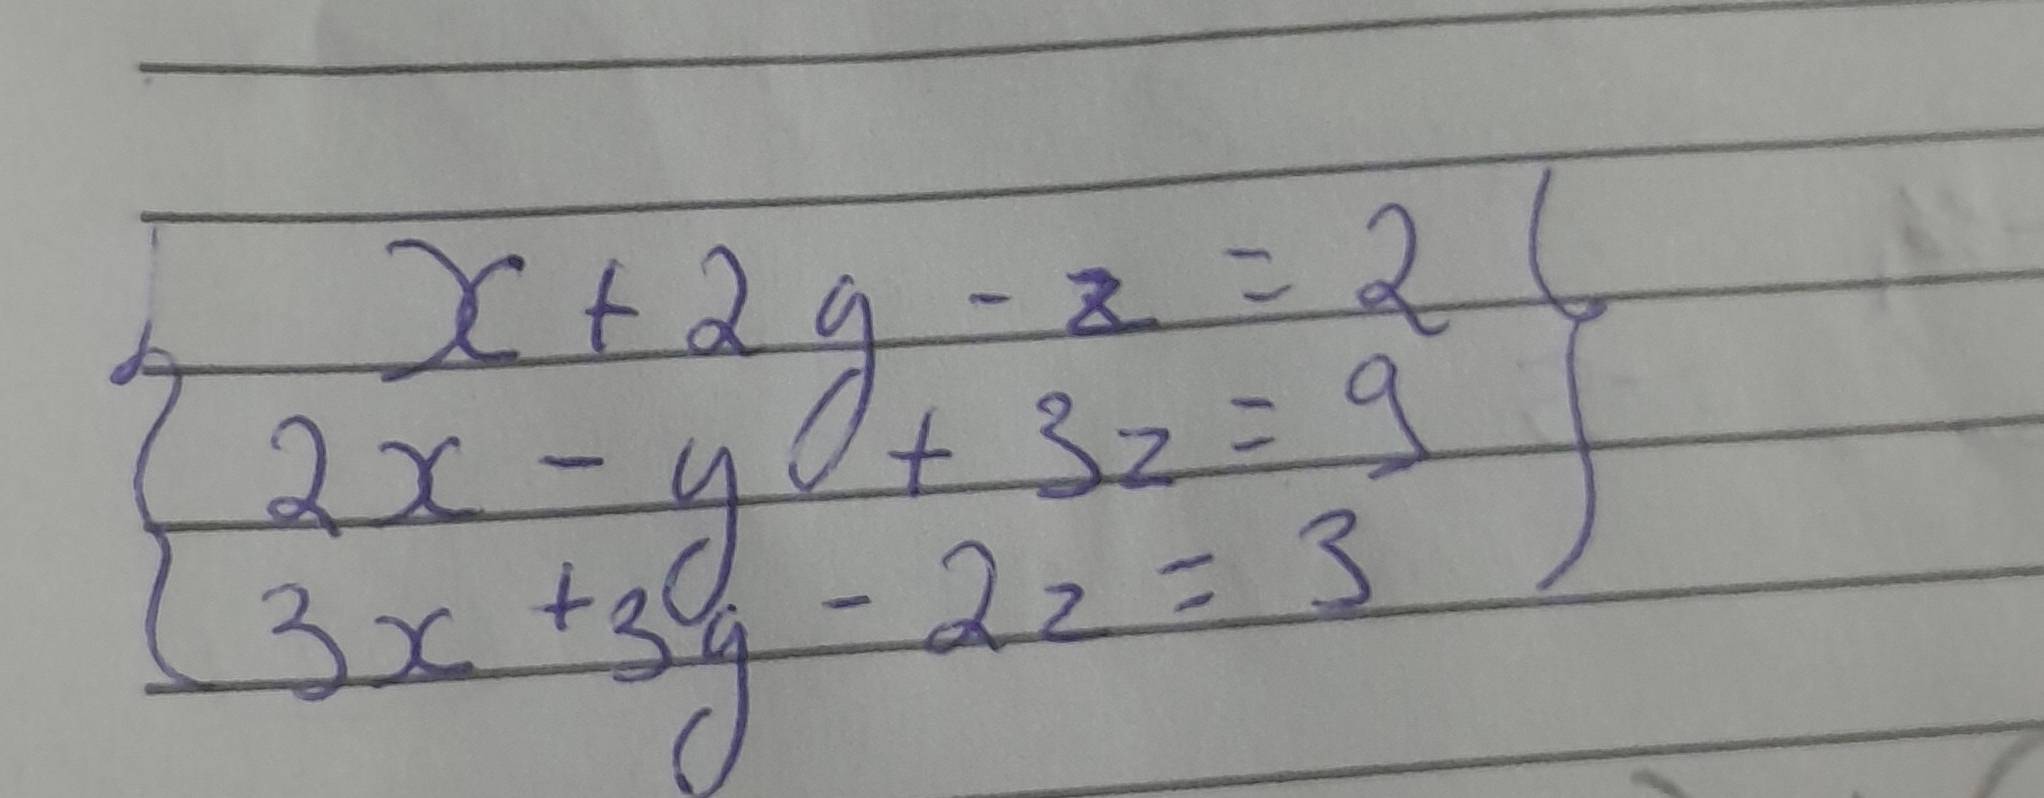 x + 2y - z = 2
2x - y + 3z = 9
3x + 3y - 2z = 3